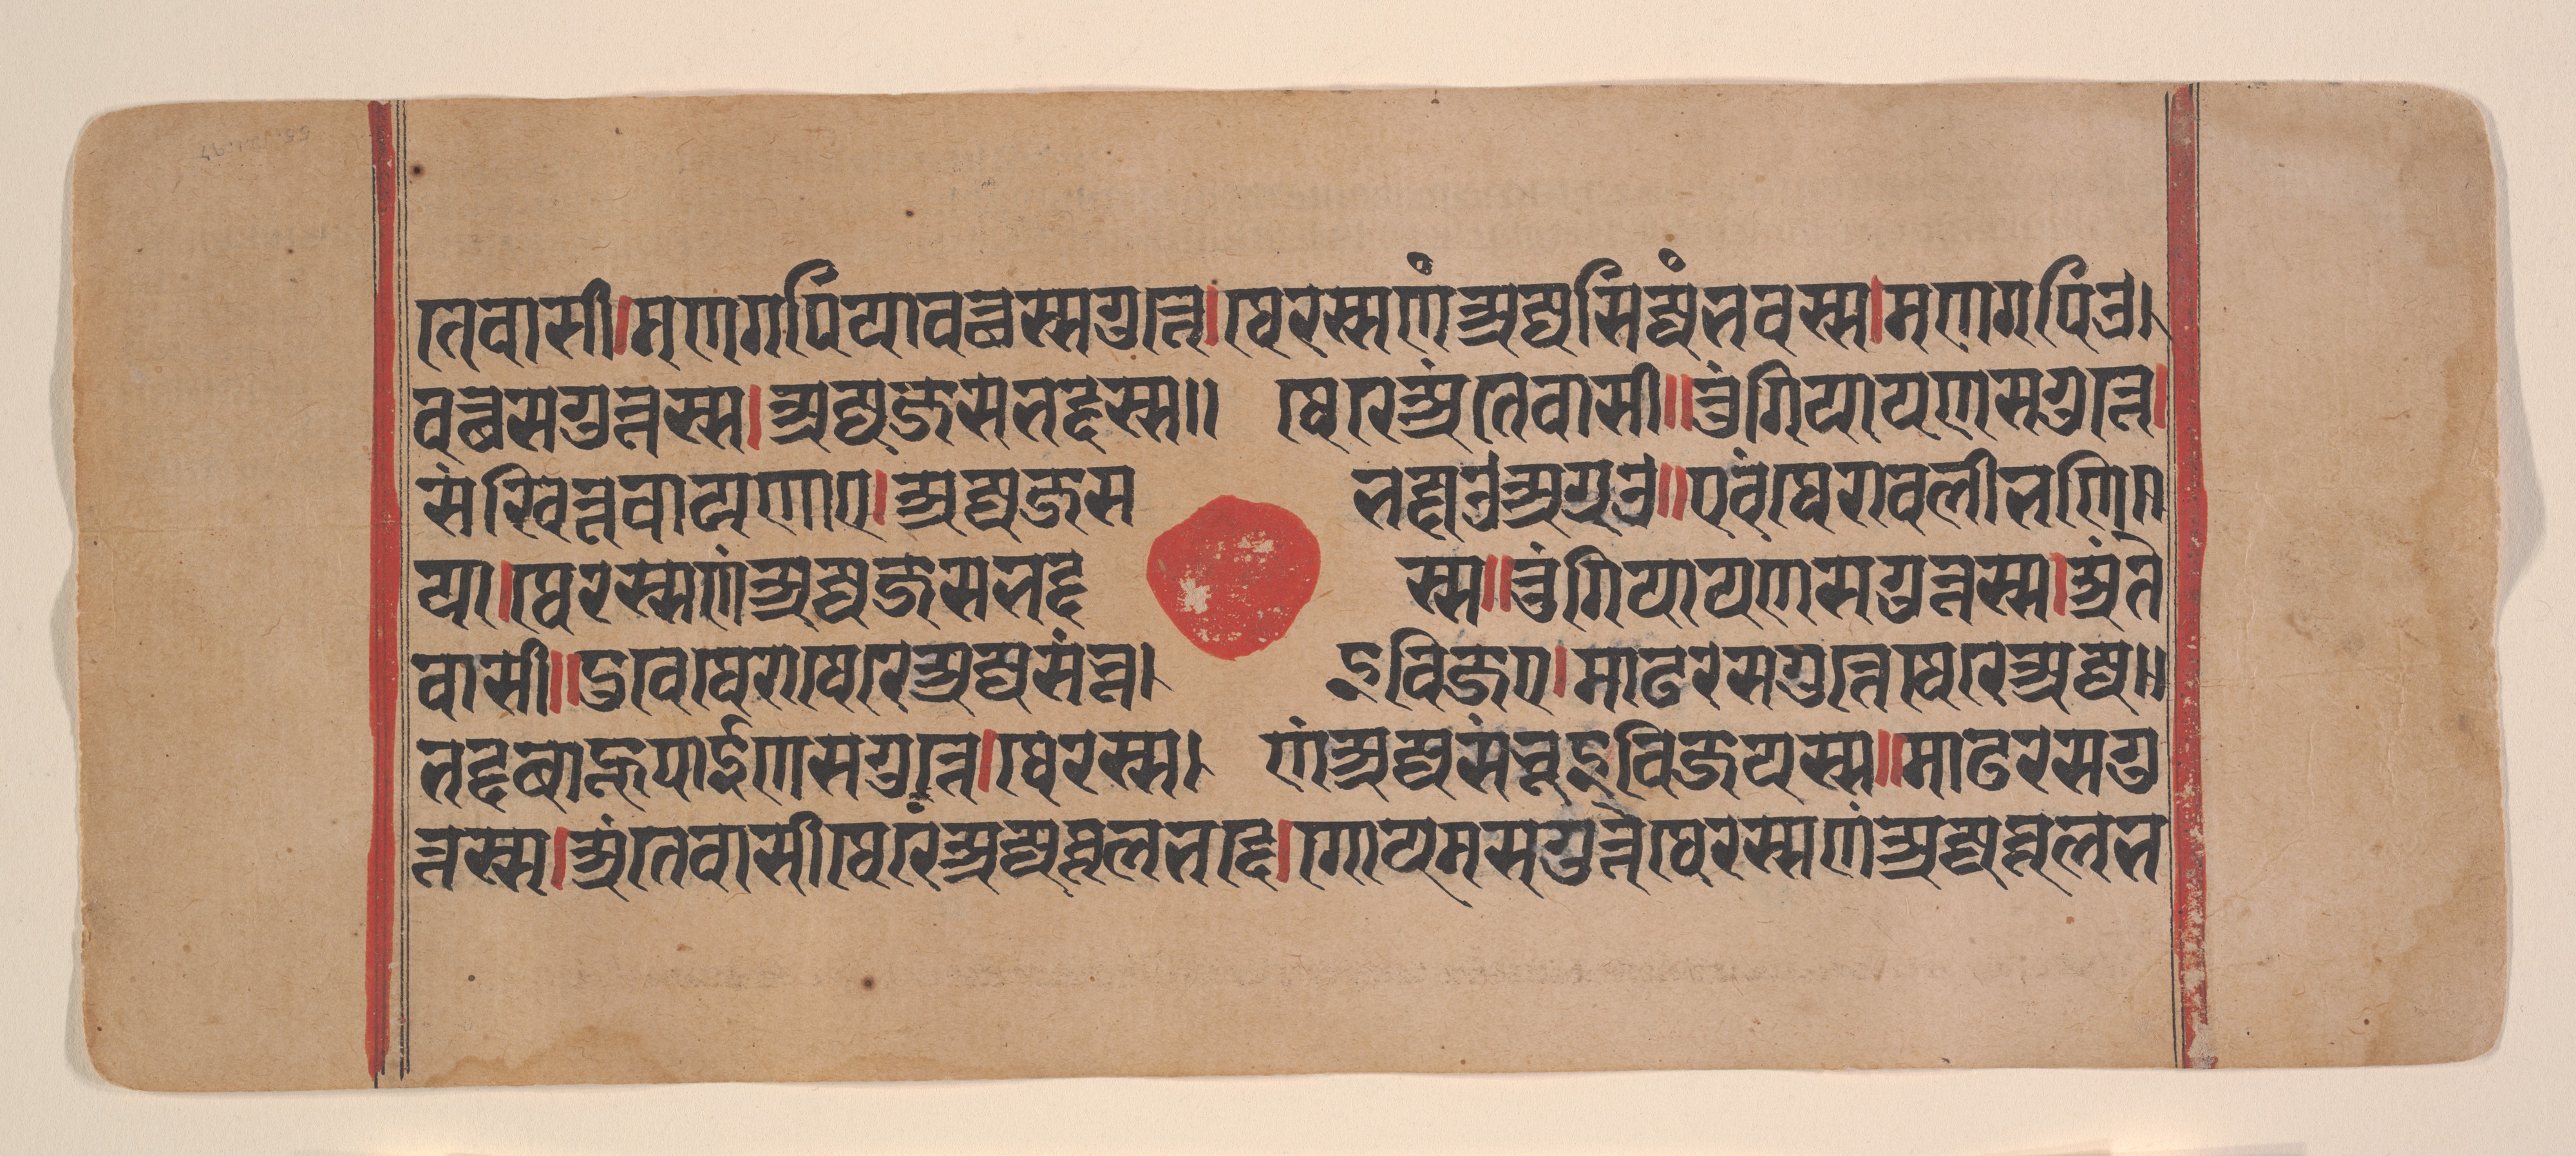 तेवासी।मणगपियावच्छस्सगुत्ते।थेरस्सणंअज्जसिज्जंभवस्स।मणगपिउ।
वच्छसगुत्तस्स।अज्जजसभद्दस्स॥ थेरेअंतेवासी॥तुंगियायणसगुत्ते।
संखित्तवायणाए।अज्जजस भद्दाउअग्गउ॥एवंथेरावलीभणि
या।थेरस्सणंअज्जजसभद्द स्स॥तुंगियायणसगुत्तस्स।अंते
वासी॥दुवेथेराथेरेअज्जसंभू। इविजए।माढरसगुत्तेथेरेअज्ज॥
भद्दबाहूपाईणसगुत्ते।थेरस्स। णंअज्जसंभूइविजयस्स॥माढरसगु
त्तस्स।अंतेवासीथेरेअज्जथूलभद्दे।गोयमसगुत्तेथेरस्सणंअज्जथूलभ